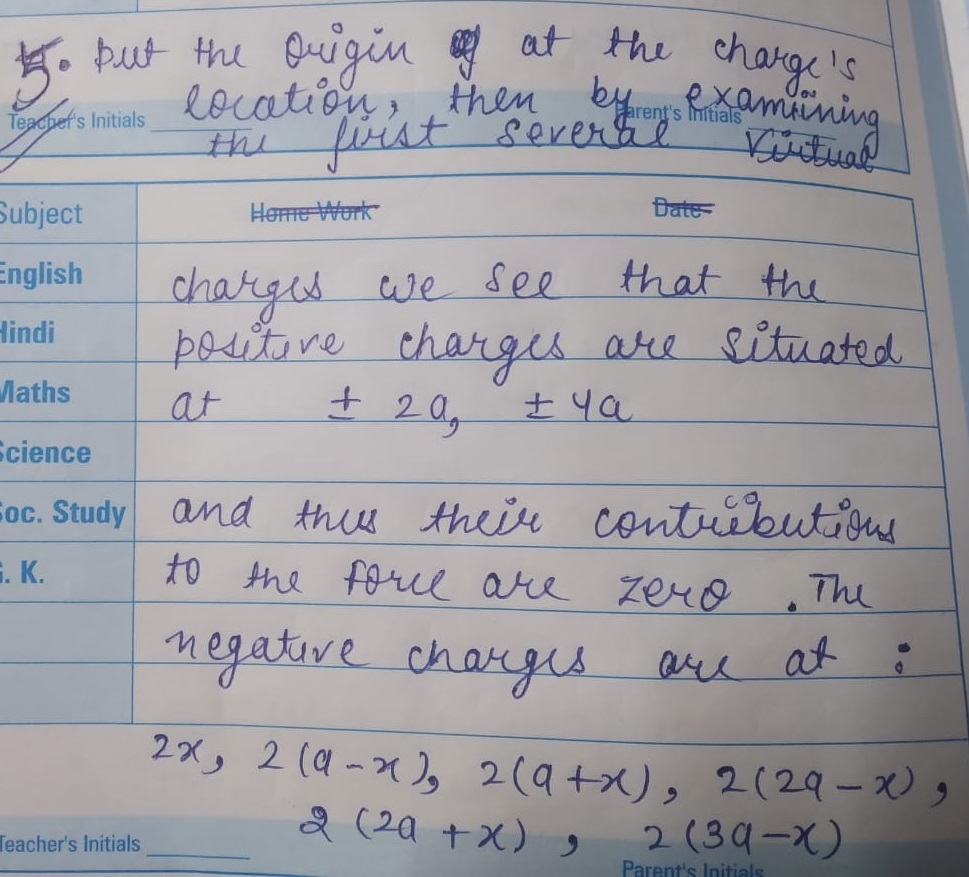 5. put the origin at the charge's
location, then by examining
Teacher's Initials Parent's Initials
the first several virtual
Subject Home Work Date
English charges we see that the
Hindi positive charges are situated
Maths at ± 2a, ± 4a
Science
Soc. Study and thus their contributions
G. K. to the force are zero. The
negative charges are at :
2x, 2(a-x), 2(a+x), 2(2a-x),
2(2a+x), 2(3a-x)
Teacher's Initials
Parent's Initials